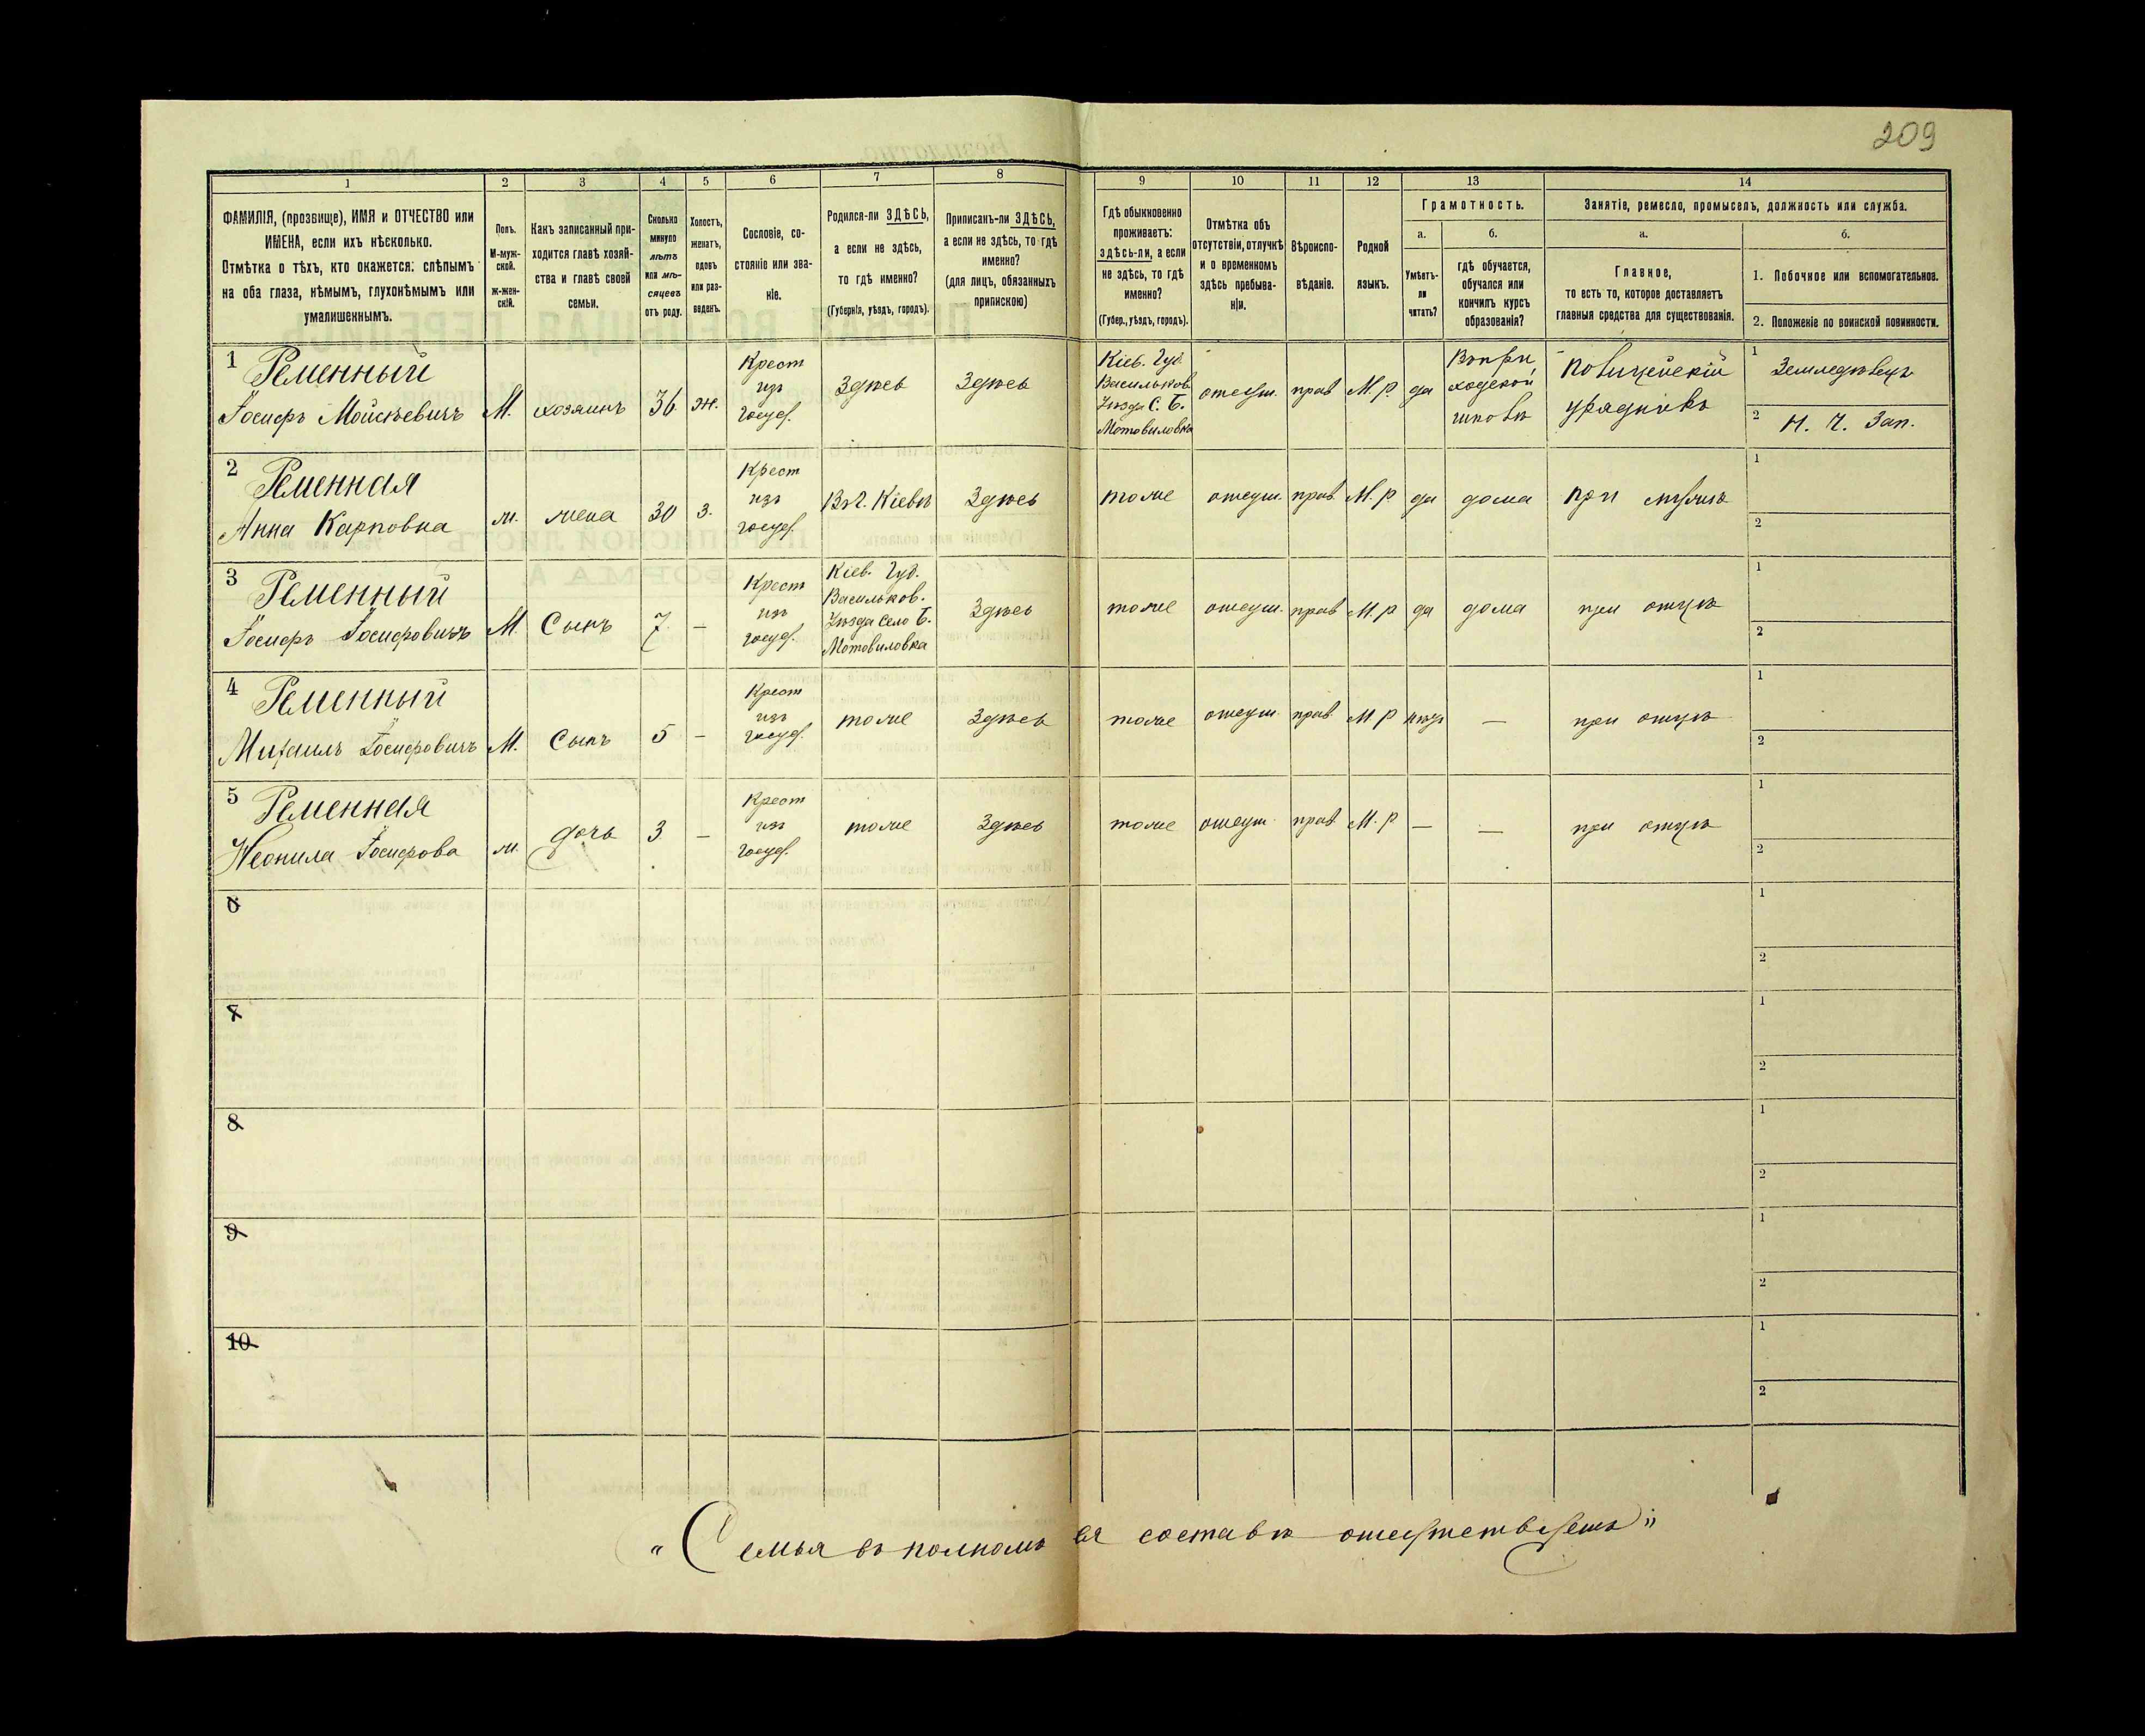 209
1 2 3 4 5 6 7 8 9 10 11 12 13 14
ФАМИЛІЯ, (прозвище), ИМЯ и ОТЧЕСТВО или
ИМЕНА, если ихъ нѣсколько.
Отмѣтка о тѣхъ, кто окажется: слѣпымъ
на оба глаза, нѣмымъ, глухонѣмымъ или
умалишеннымъ.
Полъ.
М-муж-
ской.
ж-жен-
скій.
Какъ записанный при-
ходится главѣ хозяй-
ства и главѣ своей
семьи.
Сколько
минуло
лѣтъ
или мѣ-
сяцевъ
отъ роду.
Холостъ,
женатъ,
вдовъ
или раз-
веденъ.
Сословіе, со-
стояніе или зва-
ніе.
Родился-ли ЗДѢСЬ,
а если не здѣсь,
то гдѣ именно?
(Губернія, уѣздъ, городъ).
Приписанъ-ли ЗДѢСЬ,
а если не здѣсь, то гдѣ
именно?
(для лицъ, обязанныхъ
припискою)
Гдѣ обыкновенно
проживаетъ:
здѣсь-ли, а если
не здѣсь, то гдѣ
именно?
(Губер., уѣздъ, городъ).
Отмѣтка объ
отсутствіи, отлучкѣ
и о временномъ
здѣсь пребыва-
ніи.
Вѣроиспо-
вѣданіе.
Родной
языкъ.
Грамотность.
а.
Умѣетъ-
ли
читать?
б.
гдѣ обучается,
обучался или
кончилъ курсъ
образованія?
Занятіе, ремесло, промыселъ, должность или служба.
а.
Главное,
то есть то, которое доставляетъ
главныя средства для существованія.
б.
1. Побочное или вспомогательное.
2. Положеніе по воинской повинности.
1 Ременный
Іосифъ Мойсѣевичъ
М.
хозяинъ
36
ж.
Крест
изъ
госуд.
Здѣсь
Здѣсь
Кіев. Губ.
Васильков.
Уѣзда С. Б.
Мотовиловка
отсут.
прав
М. р.
да
Въ при
ходской
школѣ
Полицейскій
урядникъ
1 Земледѣлецъ
2 Н. Ч. Зап.
2 Ременная
Анна Карповна
ж.
жена
30
з.
Крест
изъ
госуд.
Въ г. Кіевѣ
Здѣсь
тоже
отсут.
прав
М. р.
да
дома
при мужѣ
1
2
3 Ременный
Іосифъ Іосифовичъ
М
Сынъ
7
–
Крест
изъ
госуд.
Кіев. Губ.
Васильков.
Уѣзда село Б.
Мотовиловка
Здѣсь
тоже
отсут.
прав
М. р
да
дома
при отцѣ
1
2
4 Ременный
Михаилъ Іосифовичъ
М.
Сынъ
5
–
Крест
изъ
госуд.
тоже
Здѣсь
тоже
отсут.
прав.
М р
—
при отцѣ
1
2
5 Ременная
Неонила Іосифова
ж.
дочь
3
–
Крест
изъ
госуд.
тоже
Здѣсь
тоже
отсут.
прав
М. р.
—
—
при отцѣ
1
2
6
1
2
7
1
2
8
1
2
9
1
2
10
1
2
„Семья въ полномъ ея составѣ отсутствуетъ"